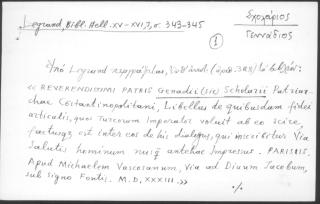 Legrand, Bibl. Hell. XV-XVI, I, σ. 343-345
Σχολάριος
Γεννάδιος
1
Ἀπὸ Legrand περιγράφεται, (ἀριθ. 388) τὸ βιβλίον:
« REVERENDISSIMI PATRIS Genadii (sic) Scholarii Patriar-
chae Costantinopolitani, Libellus de quibusdam fidei
articulis, quos Turcorum Imperator voluit ab eo scire,
est inter eos hic dialogus, qui inscibitur Via
Salutis hominum antehac Impressus. PARISIIS.
Apud Michaelem Vascosanum, Via ad Diuum Jacobum,
sub signo Fontis. M.D,XXXIII.»
·/.